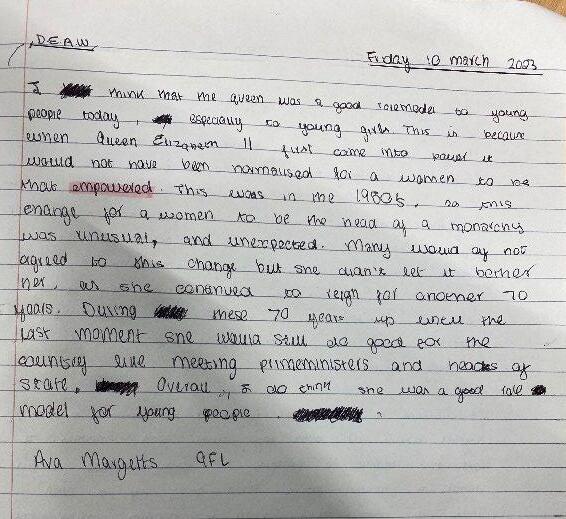 D.E.A.W
Friday 10 march 2003
I think that the queen was a good rolemodel to young
people today, especially to young girls. This is because
when Queen Elizabeth II first came into power it
would not have been normalised for a women to be
that empowered. This was in the 1950s, so this
change for a women to be the head of a monarchy
was unusual, and unexpected. Many would of not
agreed to this change but she didn't let it bother
her, as she continued to reign for another 70
years. During these 70 years up until the
last moment she would still do good for the
country like meeting primeministers and heads of
state. Overall, I do think she was a good role
model for young people.
Ava Margetts 9FL